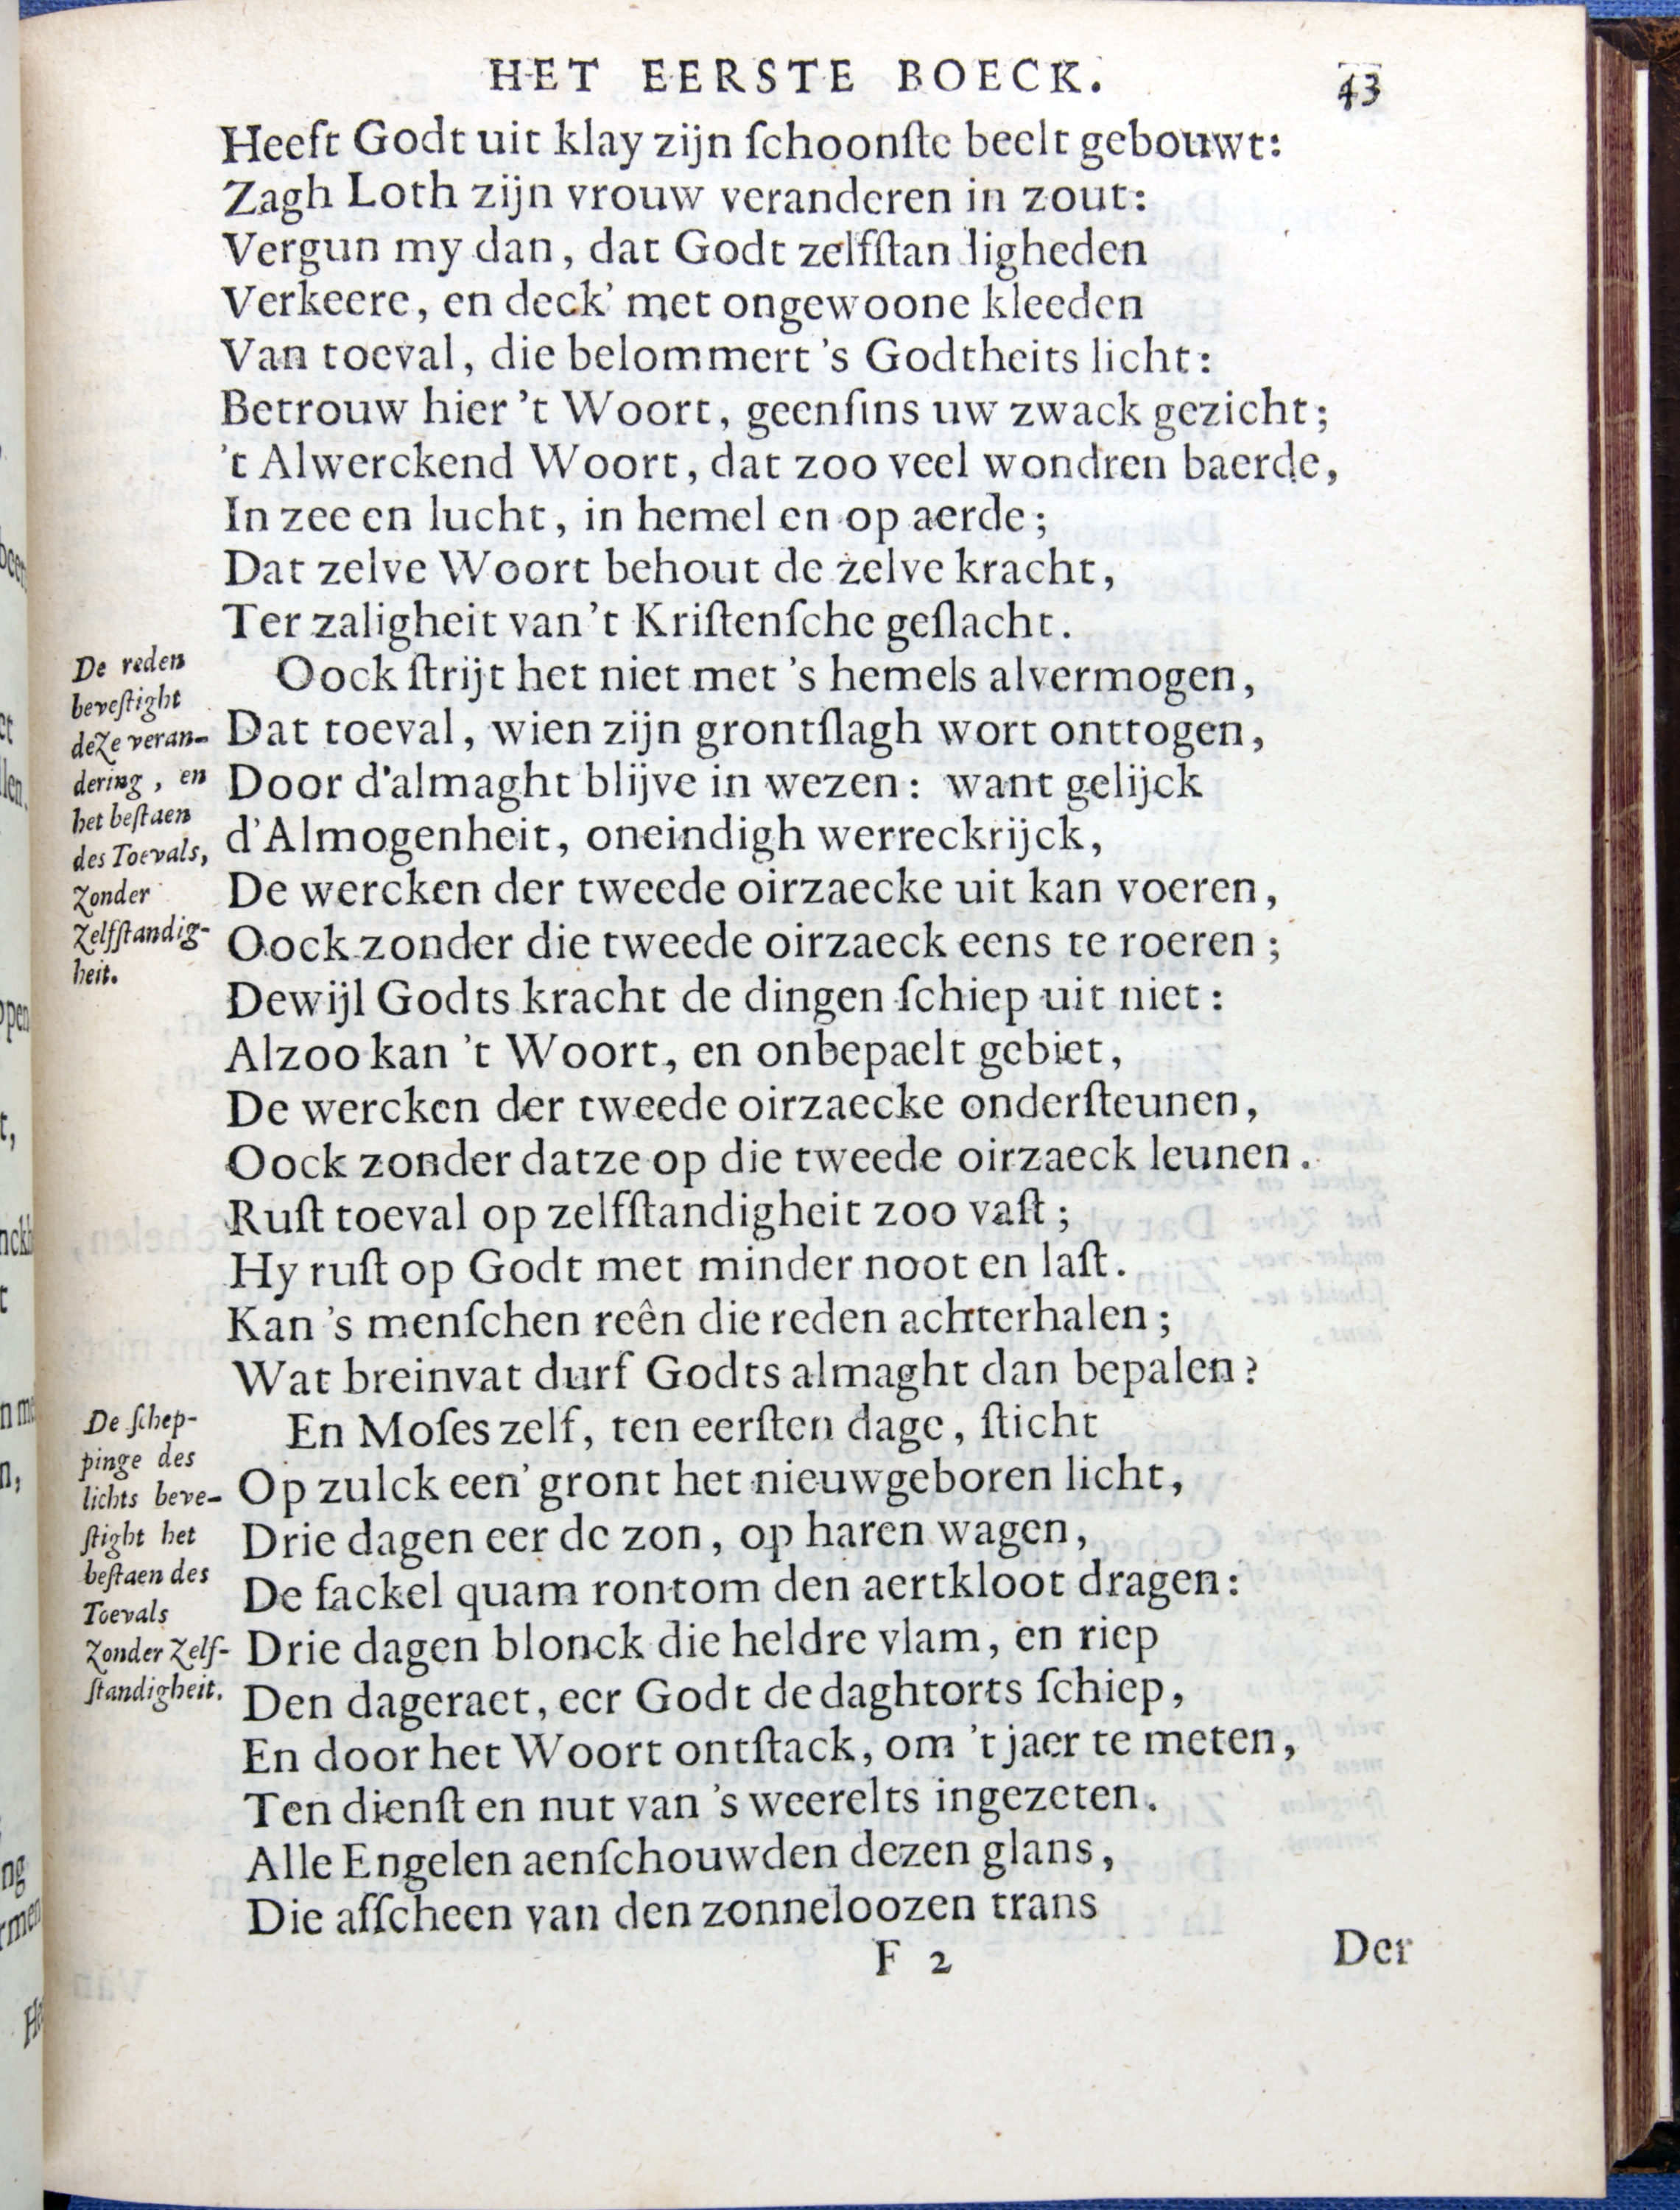 HET EERSTE BOECK. 43
Heeft Godt uit klay zijn ſchoonſte beelt gebouwt:
Zagh Loth zijn vrouw veranderen in zout:
Vergun my dan, dat Godt zelfſtan ligheden
Verkeere, en deck' met ongewoone kleeden
Van toeval, die belommert 's Godtheits licht:
Betrouw hier 't Woort, geenſins uw zwack gezicht;
't Alwerckend Woort, dat zoo veel wondren baerde,
In zee en lucht, in hemel en op aerde;
Dat zelve Woort behout de zelve kracht,
Ter zaligheit van 't Kriſtenſche geſlacht.
De reden
beveſtight
deze veran-
dering, en
het beſtaen
des Toevals,
zonder
zelfſtandig-
heit.
Oock ſtrijt het niet met 's hemels alvermogen,
Dat toeval, wien zijn grontſlagh wort onttogen,
Door d'almaght blijve in wezen: want gelijck
d'Almogenheit, oneindigh werreckrijck,
De wercken der tweede oirzaecke uit kan voeren,
Oock zonder die tweede oirzaeck eens te roeren;
Dewijl Godts kracht de dingen ſchiep uit niet:
Alzoo kan 't Woort, en onbepaelt gebiet,
De wercken der tweede oirzaecke onderſteunen,
Oock zonder datze op die tweede oirzaeck leunen.
Ruſt toeval op zelfſtandigheit zoo vaſt;
Hy ruſt op Godt met minder noot en laſt.
Kan 's menſchen reên die reden achterhalen;
Wat breinvat durf Godts almaght dan bepalen?
De ſchep-
pinge des
lichts beve-
ſtight het
beſtaen des
Toevals
zonder zelf-
ſtandigheit.
En Moſes zelf, ten eerſten dage, ſticht
Op zulck een' gront het nieuwgeboren licht,
Drie dagen eer de zon, op haren wagen,
De fackel quam rontom den aertkloot dragen:
Drie dagen blonck die heldre vlam, en riep
Den dageraet, eer Godt de daghtorts ſchiep,
En door het Woort ontſtack, om 't jaer te meten,
Ten dienſt en nut van 's weerelts ingezeten.
Alle Engelen aenſchouwden dezen glans,
Die afſcheen van den zonneloozen trans
F 2 Der